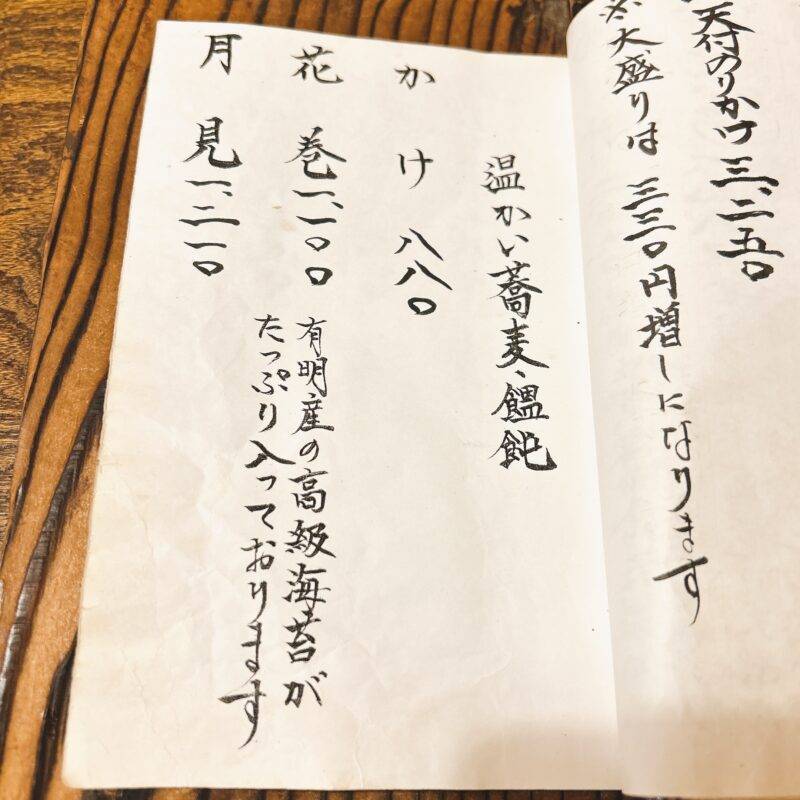 天付のりかけ三、二五〇
※大盛りは 三三〇円増しになります
温かい蕎麦、饂飩
かけ 八八〇
花巻 一、一〇〇
有明産の高級海苔が
たっぷり入っております
月見 一、二一〇